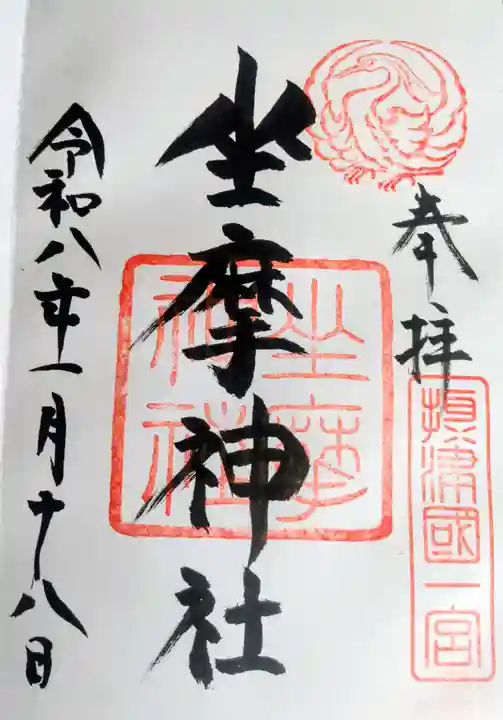 奉拝
摂津國一宮
坐摩神社
坐摩神社
令和八年一月十八日